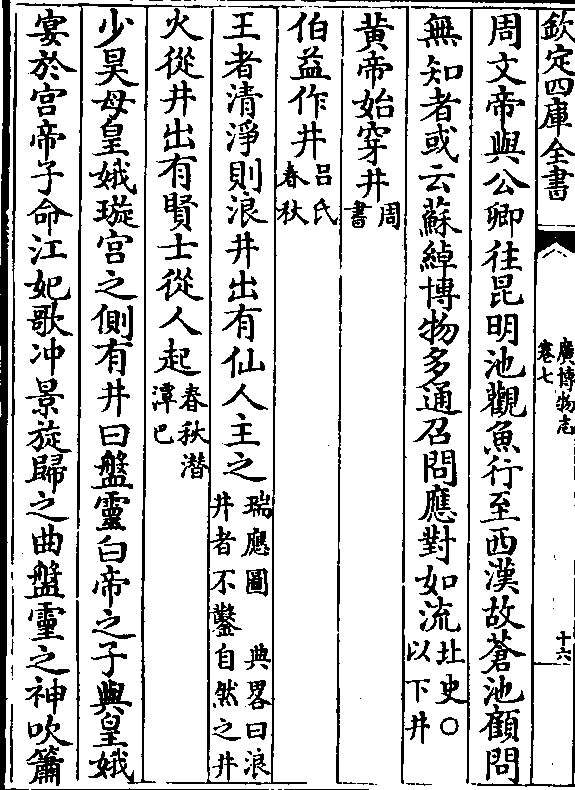 欽定四庫全書
廣博物志
卷七
十六
周文帝與公卿往昆明池觀魚行至西漢故蒼池顧問
無知者或云蘇綽博物多通召問應對如流
北史○
以下井
黄帝始穿井
周
書
伯益作井
吕氏
春秋
王者清淨則浪井出有仙人主之
瑞應圖 典畧曰浪
井者不鑿自然之井
火從井出有賢士從人起
春秋潜
潭巴
少昊母皇娥璇宫之側有井曰盤靈白帝之子與皇娥
宴於宫帝子命江妃歌冲景旋歸之曲盤靈之神吹簫